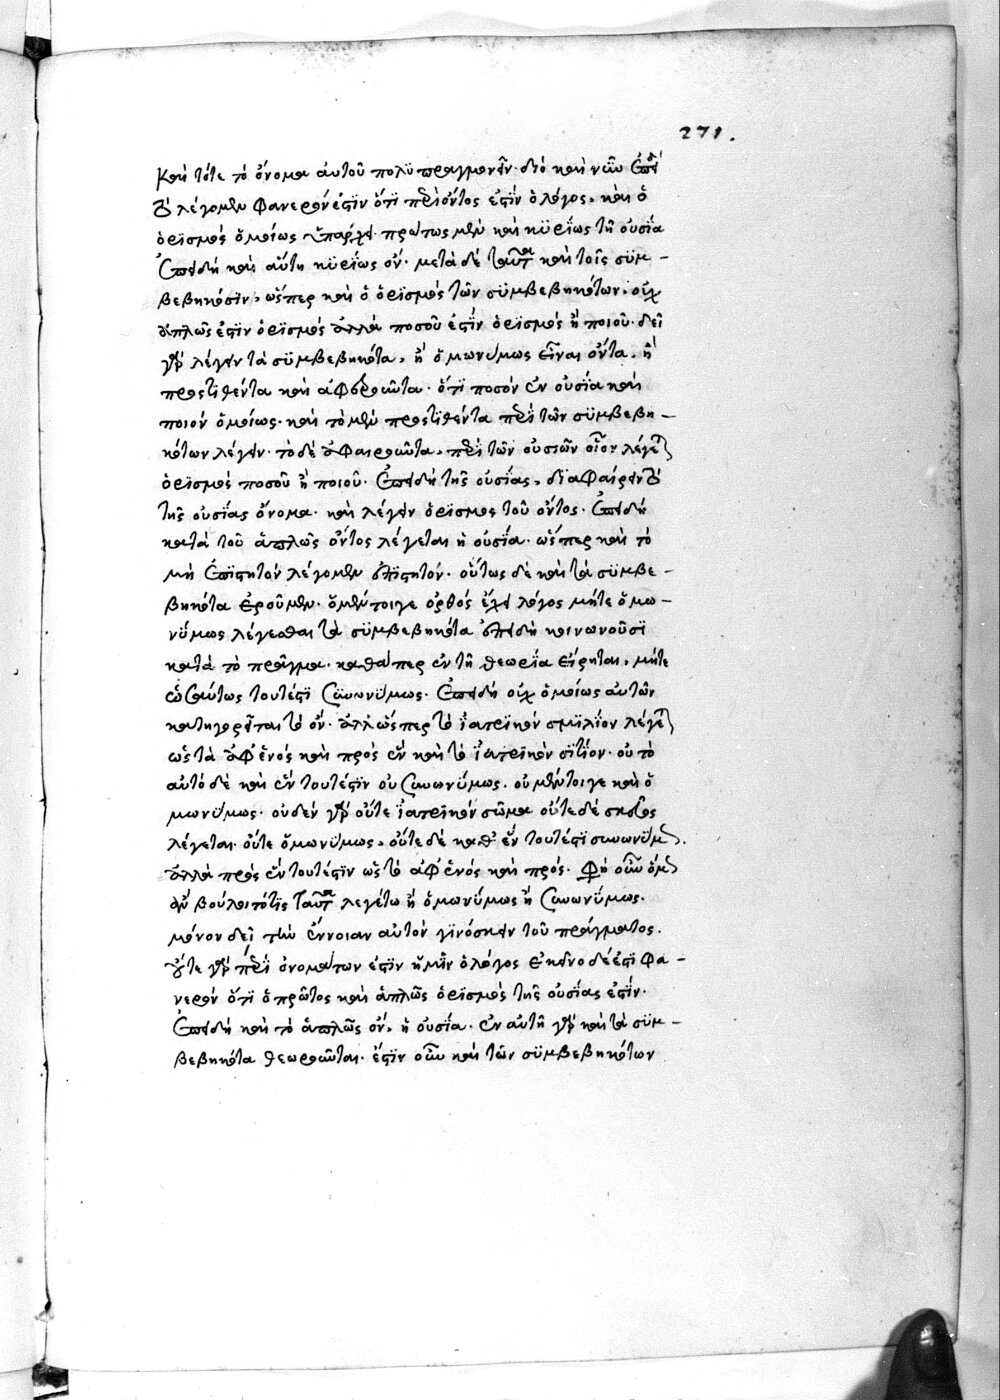 271.
καὶ τότε τὸ ὄνομα αὐτοῦ πολυπραγμονεῖν· διὸ καὶ νῦν ἐπεὶ
τὸ λεγόμεν φανερόν ἐστϊν ὅτϊ περὶ ὄντος ἐστϊν ὁ λόγος, καὶ ὁ
ὁρϊσμὸς ὁμοίως ὑπάρχει πρώτως μὲν καὶ κϋρΐως τῆ οὐσΐα
ἐπειδὴ καὶ αὕτη κϋρΐως ὄν· μετὰ δὲ ταῦτα καὶ τοῖς σϋμ –
βεβηκόσϊν, ὥσπερ καὶ ὁ ὁρϊσμὸς τῶν σϋμβεβηκότων, οὐχ
ἁπλῶς ἐστϊν ὁρϊσμὸς ἀλλὰ ποσοῦ ἐστΐν ὁρϊσμὸς ἢ ποιοῦ· δεῖ
γὰρ λέγειν τὰ σϋμβεβηκότα, ἢ ὁμωνύμως εἶναι ὄντα, ἢ
προστϊθέντα καὶ ἀφαιροῦντα· ὅτϊ ποσὸν ἐν οὐσΐα καὶ
ποιὸν ὁμοίως· καὶ τὸ μὲν προστϊθέντα περὶ τῶν σϋμβεβη –
κότων λέγειν· τὸ δὲ ἀφαιροῦντα, περὶ τῶν οὐσιῶν οἷον λέγεται
ὁρϊσμὸς ποσοῦ ἢ ποιοῦ· ἐπειδὴ τῆς οὐσΐας, διαφαίρειν τὸ
τῆς οὐσΐας ὄνομα· καὶ λέγειν ὁρϊσμος τοῦ ὄντος· ἐπειδὴ
κατὰ τοῦ ἁπλῶς ὄντος λέγεται ἡ οὐσΐα· ὥσπερ καὶ τὸ
μὴ ἐπϊστητὸν λέγομεν ἐπϊστητόν· οὕτως δὲ καὶ τὰ σϋμβε –
βηκότα ἐροῦμεν· ὁ μέντοιγε ὀρθὸς ἔχει λόγος μήτε ὁμω –
νΰμως λέγεσθαι τὰ σϋμβεβηκότα ἐπειδὴ κοινωνοῦσϊ
κατὰ τὸ πρᾶγμα· καθάπερ ἐν τῆ θεωρΐα εἴρηται, μήτε
ὡσαύτως τουτέστϊ συνωνΰμως· ἐπειδὴ οὐχ ὁμοίως αὐτῶν
κατηγορεῖται τὸ ὄν· ἀλλ' ὥσπερ τὸ ἰατρϊκὸν σμϊλίον λέγεται
ὡς τὰ ἀφ' ἑνὸς καὶ πρὸς ἓν καὶ τὸ ἰατρϊκὸν σϊτΐον· οὐ τὸ
αὐτὸ δὲ καὶ ἓν τουτέστϊν οὐ συνωνΰμως, οὐ μέντοιγε καὶ ὁ
μωνΰμως· οὐδὲν γὰρ οὔτε ἰατρϊκὸν σῶμα οὔτε δὲ σκεῦος
λέγεται, οὔτε ὁμωνΰμως, οὔτε δὲ καθ' ἓν τουτέστϊ συνωνΰμως.
ἀλλὰ πρὸς ἓν τουτέστϊν ὡς τὸ ἀφ' ἑνὸς καὶ πρός· φη οὖν ὅπως
ἂν βούλοιτό τϊς ταῦτα λεγέτω ἢ ὁμωνΰμως ἢ συνωνΰμως.
μόνον δεῖ τὴν ἔννοιαν αὐτὸν γϊνόσκειν τοῦ πράγματος.
οὔτε γὰρ περὶ ὀνομάτων ἐστϊν ἡμῖν ὁ λόγος ἐκεῖνο δέ ἐστϊ φα –
νερὸν ὅτϊ ὁ πρῶτος καὶ ἁπλῶς ὁρϊσμὸς τῆς οὐσΐας ἐστΐν·
ἐπειδὴ καὶ τὸ ἁπλῶς ὄν, ἡ οὐσΐα· ἐν αὐτῆ γὰρ καὶ τὰ σϋμ –
βεβηκότα θεωροῦνται· ἔστϊν οὖν καὶ τῶν σϋμβεβηκότων